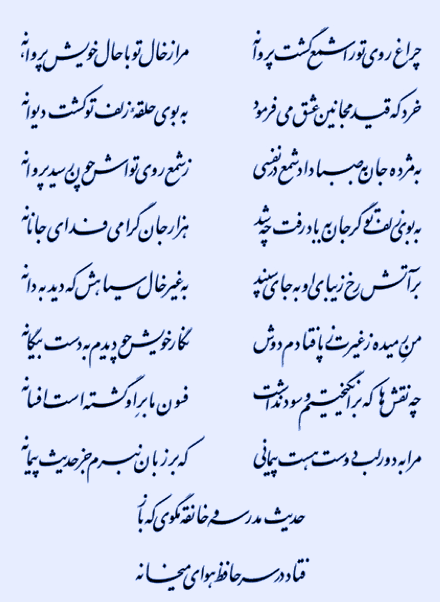 چراغ روی تو را شمع گشت پروانه مرا ز خال تو با حال خویش پروا نه
خرد که قید مجانین عشق می فرمود به بوی حلقه زلف تو گشت دیوانه
به مژده جان به صبا داد شمع در نفسی ز شمع روی تواش چون رسید پروانه
به بوی زلف تو گر جان به باد رفت چه شد هزار جان گرامی فدای جانانه
بر آتش رخ زیبای او به جای سپند به غیر خال سیاهش که دید به دانه
من رمیده ز غیرت ز پا فتادم دوش نگار خویش چو دیدم به دست بیگانه
چه نقش ها که برانگیختیم و سود نداشت فسون ما بر او گشته است افسانه
مرا به دور لب دوست هست پیمانی که بر زبان نبرم جز حدیث پیمانه
حدیث مدرسه و خانقه مگوی که باز
فتاد در سر حافظ هوای میخانه